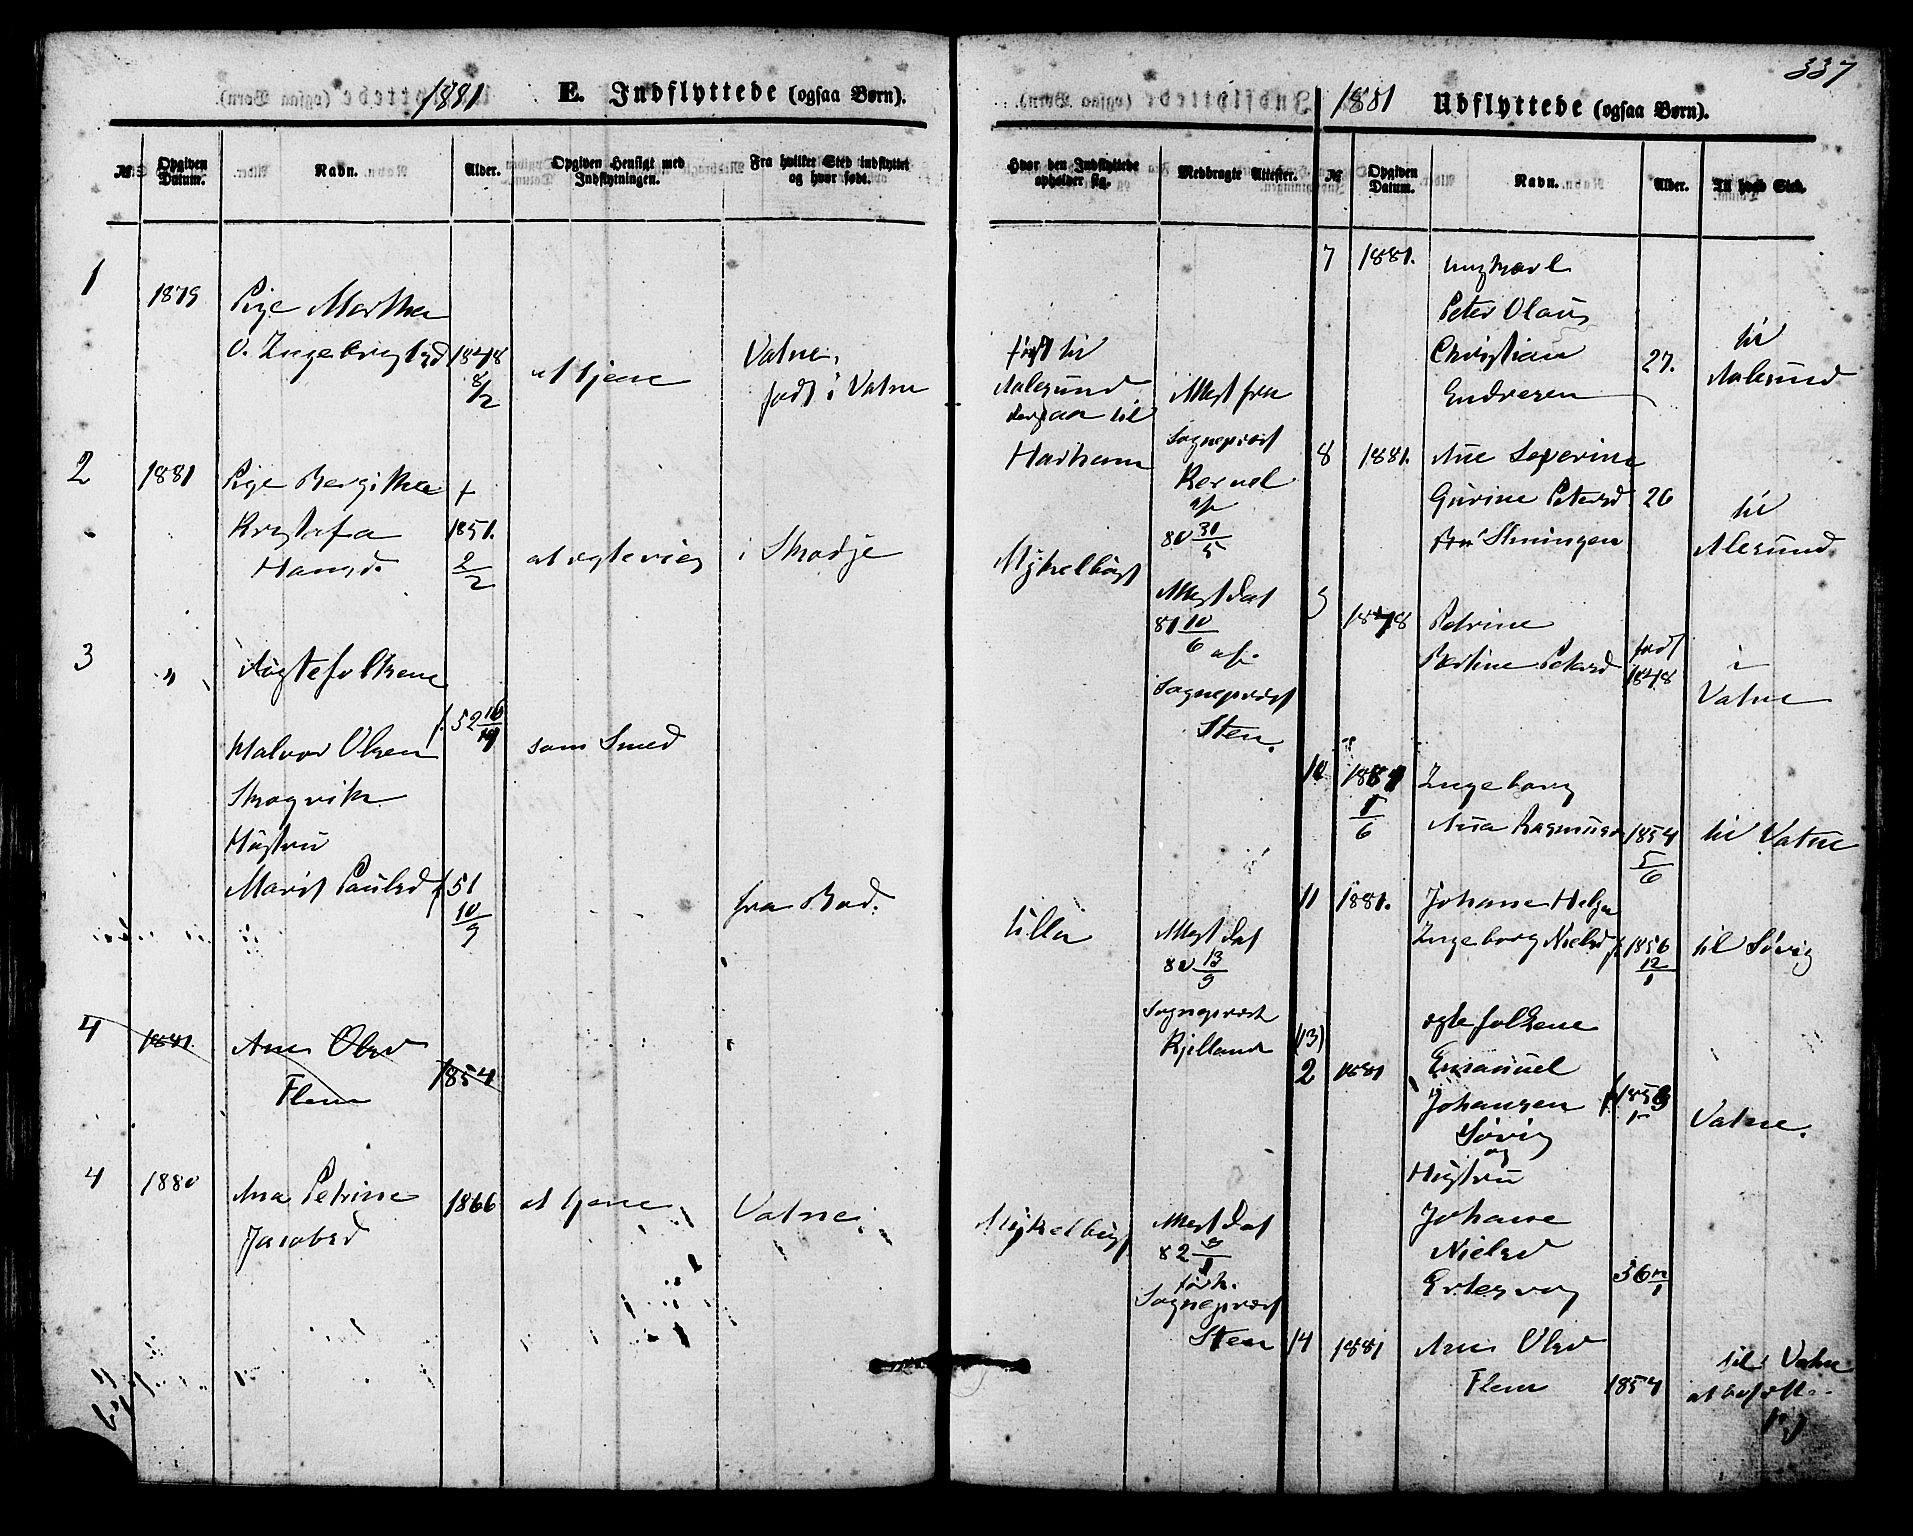 337
1881
E. Indflyttede (ogsaa Børn).
№
Opgiven Datum.
Navn.
Alder.
Opgiven Hensigt med Indflytningen.
Fra hvilket Sted indflyttet og hvor født.
Hvor den Indflyttede opholder sig.
Medbragte Attester.
1
1879
Pige Martha
O. Ingebrigtsd
1848
8/2
at tjene
Vatne,
født i Vatne
først til
Aalesund
derpaa til
Harham
Attest fra
Sognepræst
Kernel
af
80 31/5
2
1881
Pige Bergithe
Kristofa
Hansd.
f
1851.
2/2
at ægtevies
i Skodje
Myhelbust
Attest dat
81 10/6 af.
Sognepræst
Sten.
3
"
Ægtefolkene
Halvor Olsen
f. 52
som Smed
Skogvik
Hustru
Marit Paulsd
f 51
10/9
fra Bod.
Ulla
Attest dat
80 13/9
Sognepræst
Kjelland
4
1881
Ane Olsd
Flem
1854
4
1880
Ana Petrine
Jacobsd
1866
at tjene
Vatne
Mykelbust
Attest dat
82
Sognepræst
Sten
1881
Udflyttede (ogsaa Børn).
№
Opgiven Datum.
Navn.
Alder.
Til hvad Sted.
7
1881.
ungkarl
Peter Olaus
Christian
Endresen
27.
til
Aalesund
8
1881.
Ane Severine
Gurine Petersd
26
Slyningen
til
Alesund
9
1878
Petrine
Bertine Petersd
født
1848
i
Vatne
10
1881
5/6
Ingeborg
Ana Rasmusd
1854
5/6
til Vatne
11
1881.
Johane Helga
Ingeborg Nielsd
f 1856
12/1
til Søvig
(13)
2
1881
ægtefolkene
Emanuel
Johansen
f 1853
Søvig
og
Hustru
Johane
Nielsd
Eltesvog
56 12/1
Vatne.
14
1881
Ane Olsd
Flem
1854
til Vatne